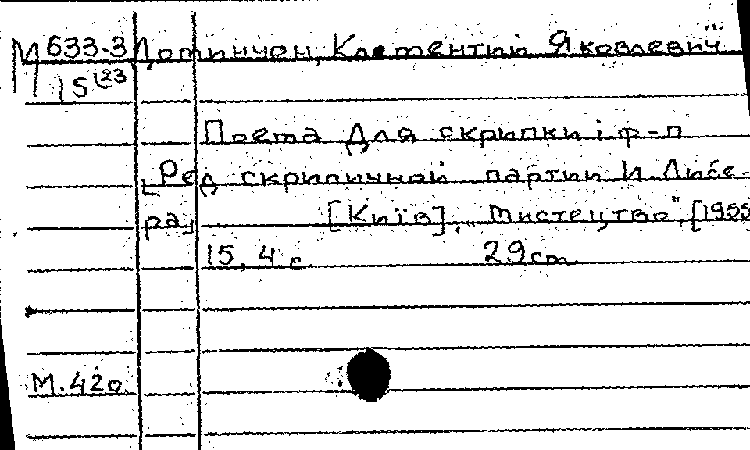 М 633-3 Домінчен, Климентий Яковлевич
15(23
Поема Для скрипки і ф-п
[Ред скрипичной партии И Лисе-
ра] [Київ], "Мистецтво", [1955
15, 4 с 29 cm
М.420